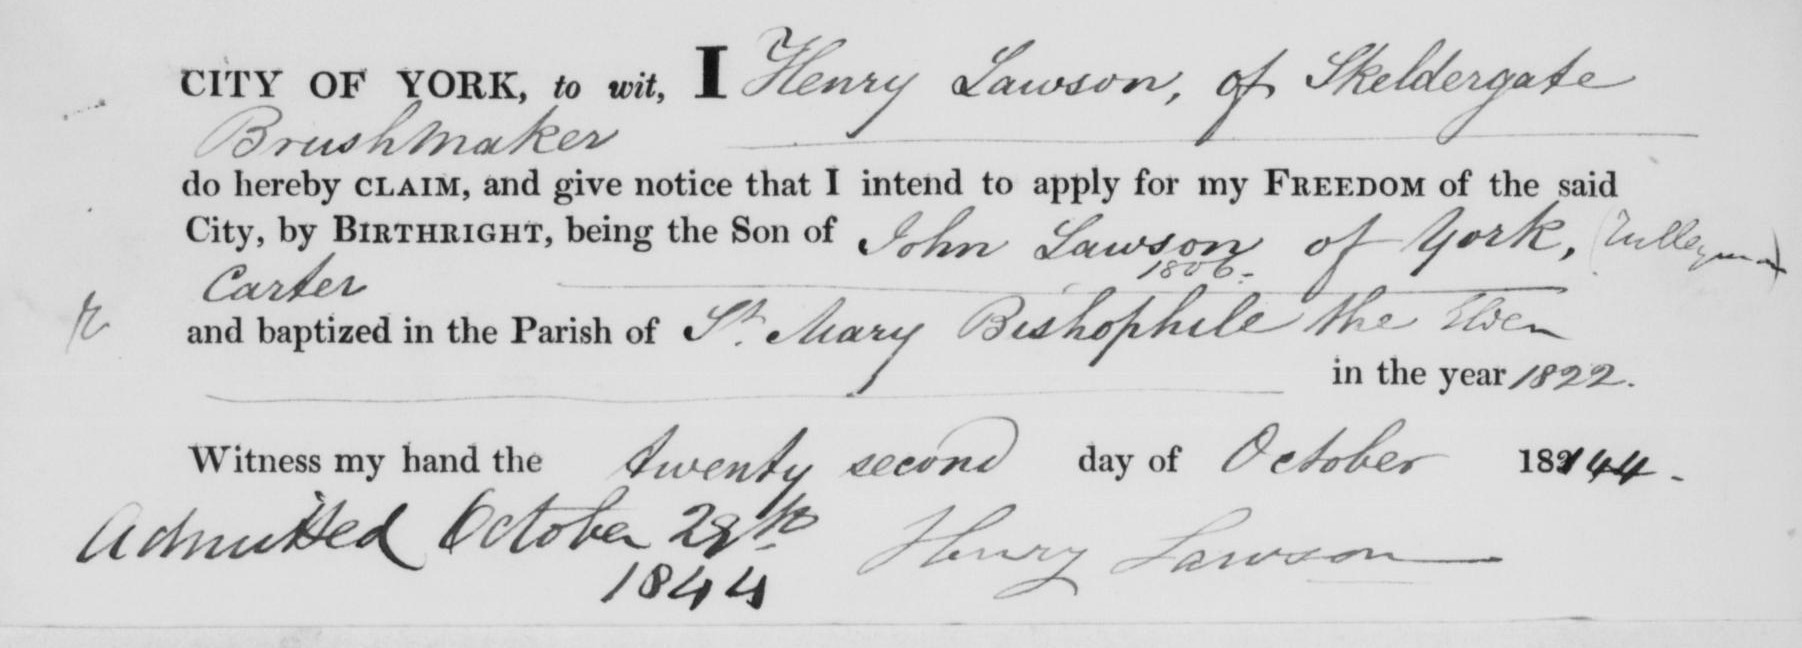 CITY OF YORK, to wit, I Henry Lawson, of Skeldergate
Brushmaker
do hereby CLAIM, and give notice that I intend to apply for my FREEDOM of the said
City, by BIRTHRIGHT, being the Son of John Lawson of York,
1806.
Carter
and baptized in the Parish of St. Mary Bishophile the Elder
in the year 1822.
Witness my hand the twenty second day of October 1844.
Admitted October 28th Henry Lawson
1844